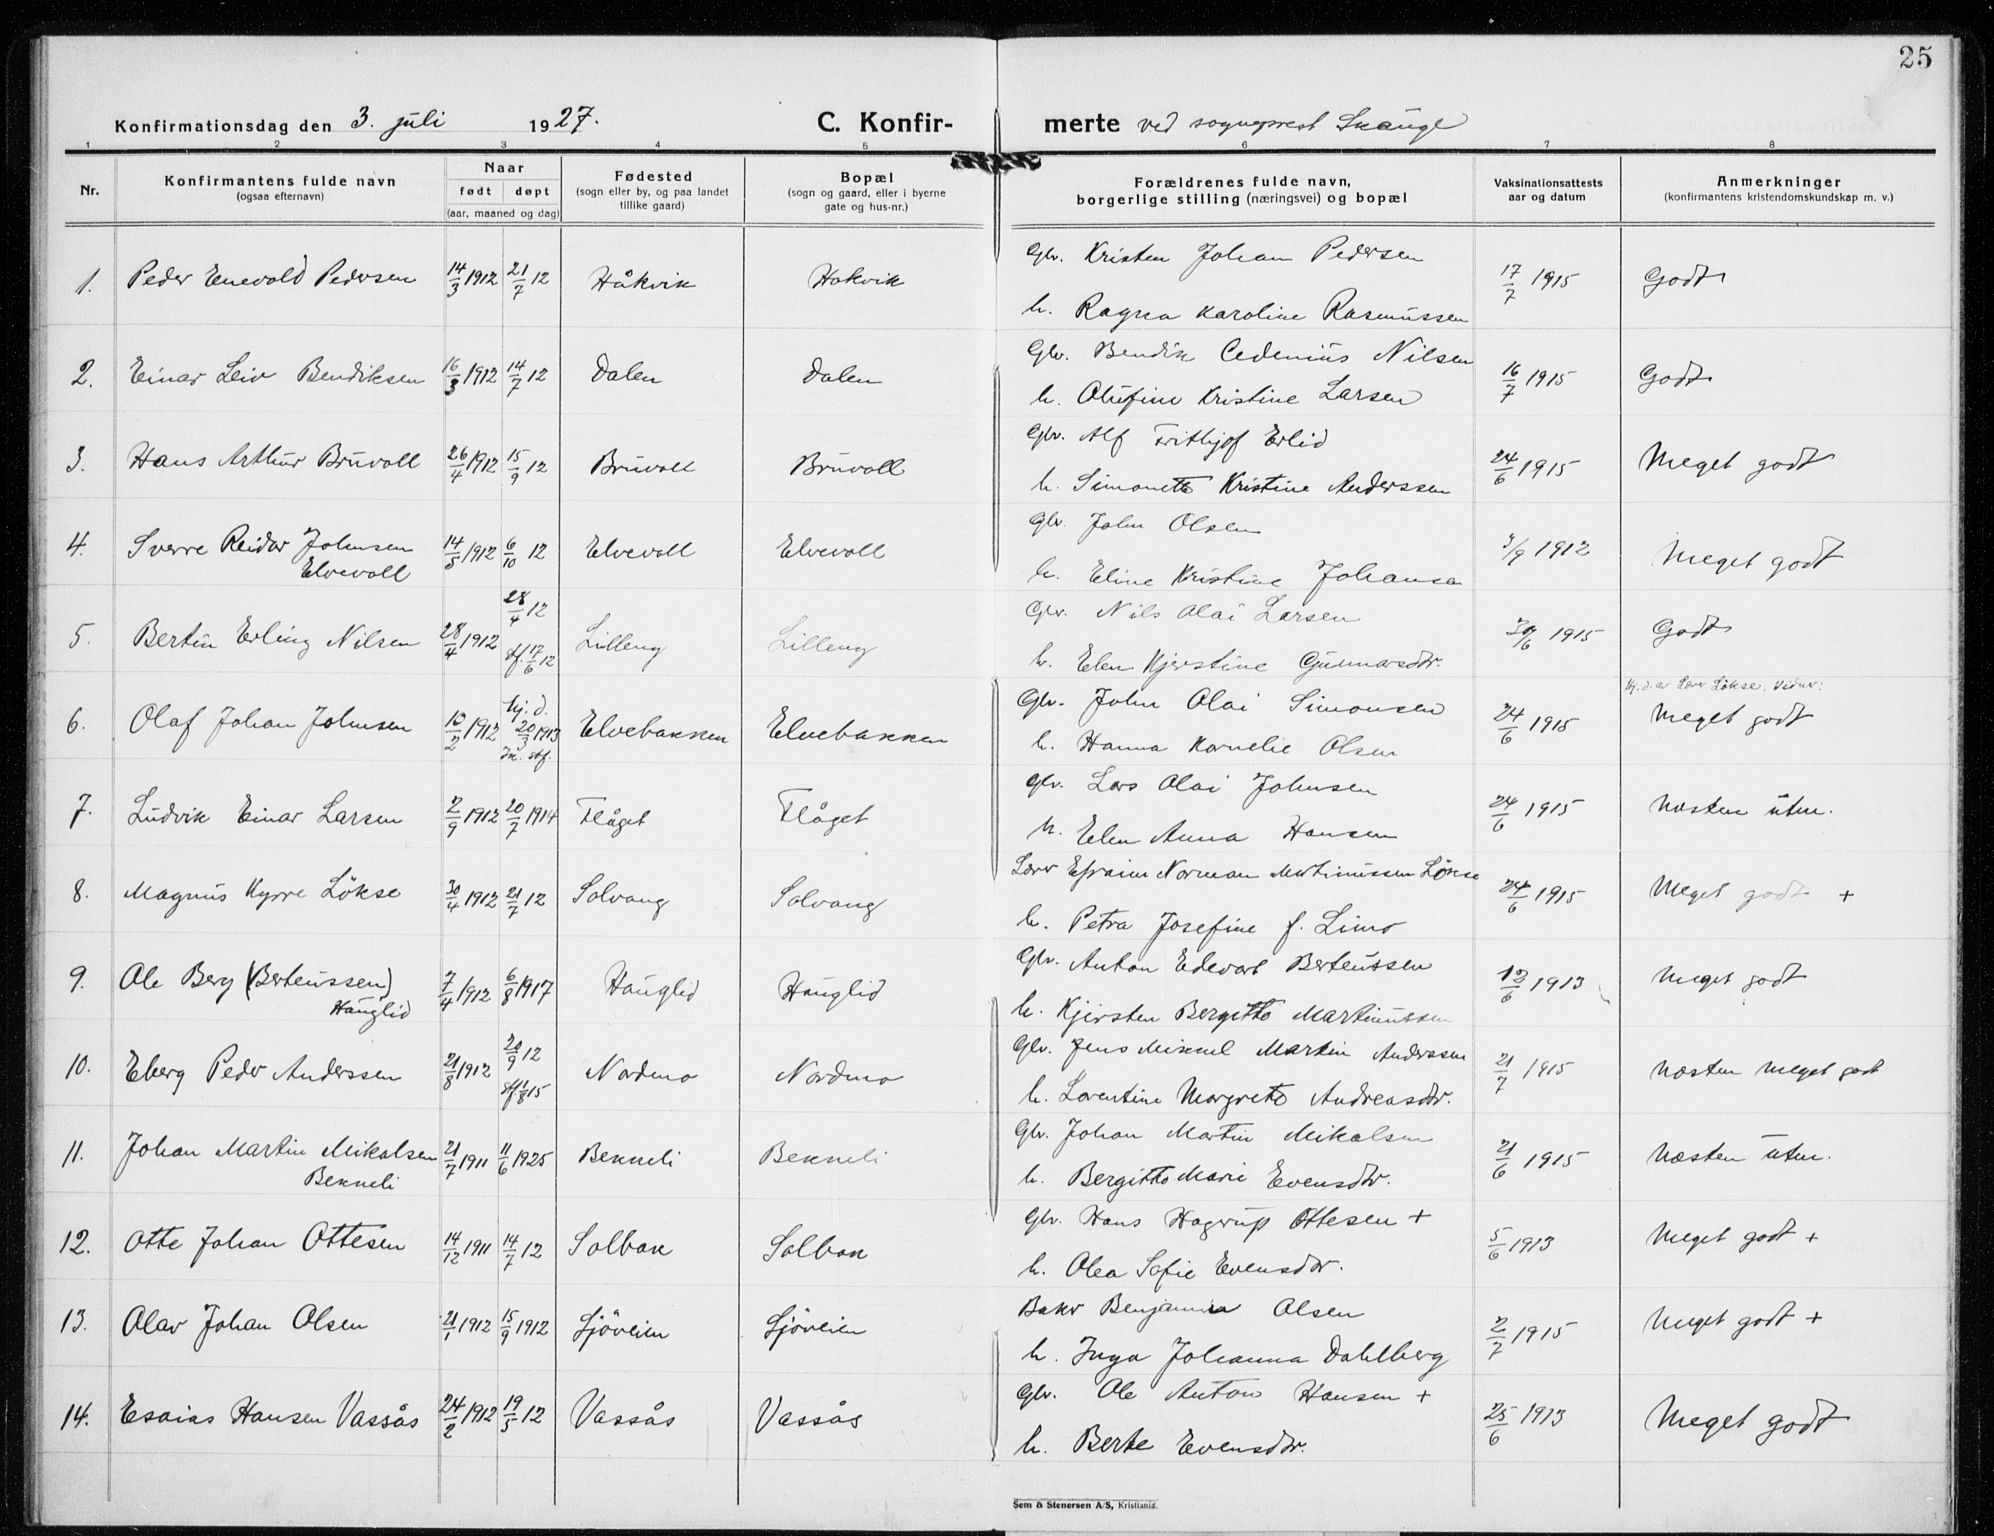 25
Konfirmationsdag den 3. juli 1927. C. Konfirmerte ved sogneprest Skauge
1 2 3 4 5 6 7 8
Nr. Konfirmantens fulde navn (ogsaa efternavn) Naar født døpt (aar, maaned og dag) Fødested (sogn eller by, og paa landet tillike gaard) Bopæl (sogn og gaard, eller i byerne gate og hus-nr.) Forældrenes fulde navn, borgerlige stilling (næringsvei) og bopæl Vaksinationsattests aar og datum Anmerkninger (konfirmantens kristendomskundskap m. v.)
Gbr. Kristen Johan Pedersen
1. Peder Enevold Pedersen 14/3 1912 21/7 12 Håkvik Hakvik 17/7 1915 Godt
h. Ragna Karoline Rasmussen
Gbr. Bendik Cedenius Nilsen
2. Einar Leiv Bendiksen 16/3 1912 14/7 12 Dalen Dalen 16/7 1915 Godt
h. Olufine Kristine Larsen
Gbr. Alf Frithjof Erlid
3. Hans Arthur Bruvoll 26/4 1912 15/9 12 Bruvoll Bruvoll 24/6 1915 Meget godt
h. Simonette Kristine Anderssen
Gbr. John Olsen
4. Sverre Reidar Johnsen 14/5 1912 6/10 12 Elvevoll Elvevoll 3/9 1912 Meget godt
Elvevoll
h. Eline Kristine Johansen
28/4 12 Gbr. Nils Olai Larsen
5. Bertin Erling Nilsen 28/4 1912 Lilleng Lilleng 30/6 1915 Godt
stf. 17/6 12 h. Elen Kjerstine Gunnarsdtr.
hj. d. Gbr. John Olai Simonsen hj. d. av Lærer Løkse. Vidner:
6. Olaf Johan Johnsen 10/2 1912 20/3 1913 Elvebakken Elvebakken 24/6 1915 Meget godt
stf. h. Hanna Kornelie Olsen
Gbr. Lars Olai Johnsen
7. Ludvik Einar Larsen 2/9 1912 20/7 1914 Flåget Flåget 24/6 1915 Næsten utm.
h. Elen Anna Hansen
Lærer Efraim Norman Martinussen Løkse
8. Magnus Kyrre Løkse 30/4 1912 21/7 12 Solvang Solvang 24/6 1915 Meget godt +
h. Petra Josefine f. Limo
Gbr. Anton Edevart Berteussen
9. Ole Berg (Berteussen) 7/4 1912 6/8 1917 Hauglid Hauglid 12/6 1913 Meget godt
Hauglid h. Kjersten Bergitte Martinussen
20/9 12 Gbr. Jens Mikael Martin Anderssen
10. Eberg Peder Anderssen 21/8 1912 Nordmo Nordmo 21/7 1915 Næsten meget godt
stf. 1/8 15 h. Lorentine Margrete Andreasdtr.
Gbr. Johan Martin Mikalsen
11. Johan Martin Mikalsen 21/7 1911 11/6 1925 Bekkeli Bekkeli 21/6 1915 Næsten utm.
Bekkeli h. Bergitte Marie Evensdtr.
Gbr. Hans Hagrup Ottesen +
12. Otte Johan Ottesen 14/12 1911 14/7 12 Solbak Solbak 5/6 1913 Meget godt +
h. Olea Sofie Evensdtr.
Baker Benjamin Olsen
13. Olav Johan Olsen 21/1 1912 15/9 1912 Sjøveien Sjøveien 2/7 1915 Meget godt +
h. Inga Johanna Dahlberg
Gbr. Ole Anton Hansen +
14. Esaias Hansen Vassås 24/2 1912 19/5 12 Vassås Vassås 25/6 1913 Meget godt
h. Berte Evensdtr.
Sem & Stenersen A/S, Kristiania.